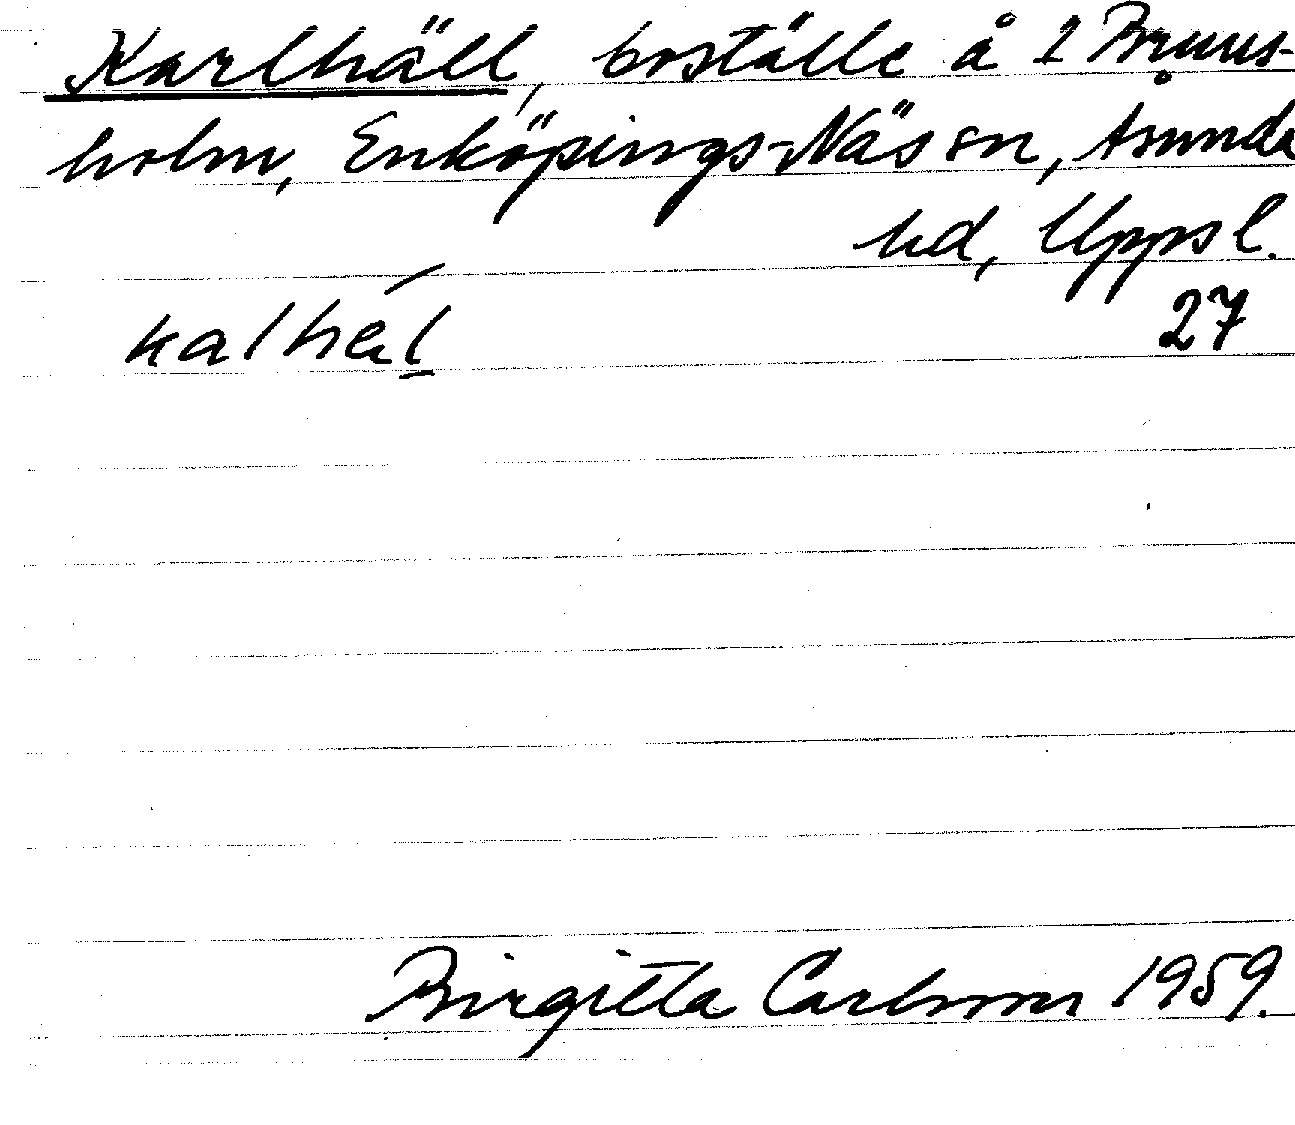 Karlhäll, boställe å 1 Bryns-
holm, Enköpings-Näs sn, Åsunda
hd, Uppsl.
27
Birgitta Carlsson 1959.